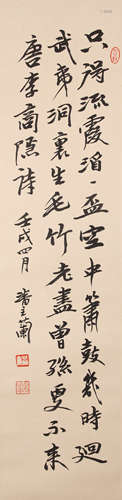 只得流霞酒一盃空中簫鼓幾時迴
武夷洞裏生毛竹老盡曾孫更不來
唐李商隱詩 壬戌四月